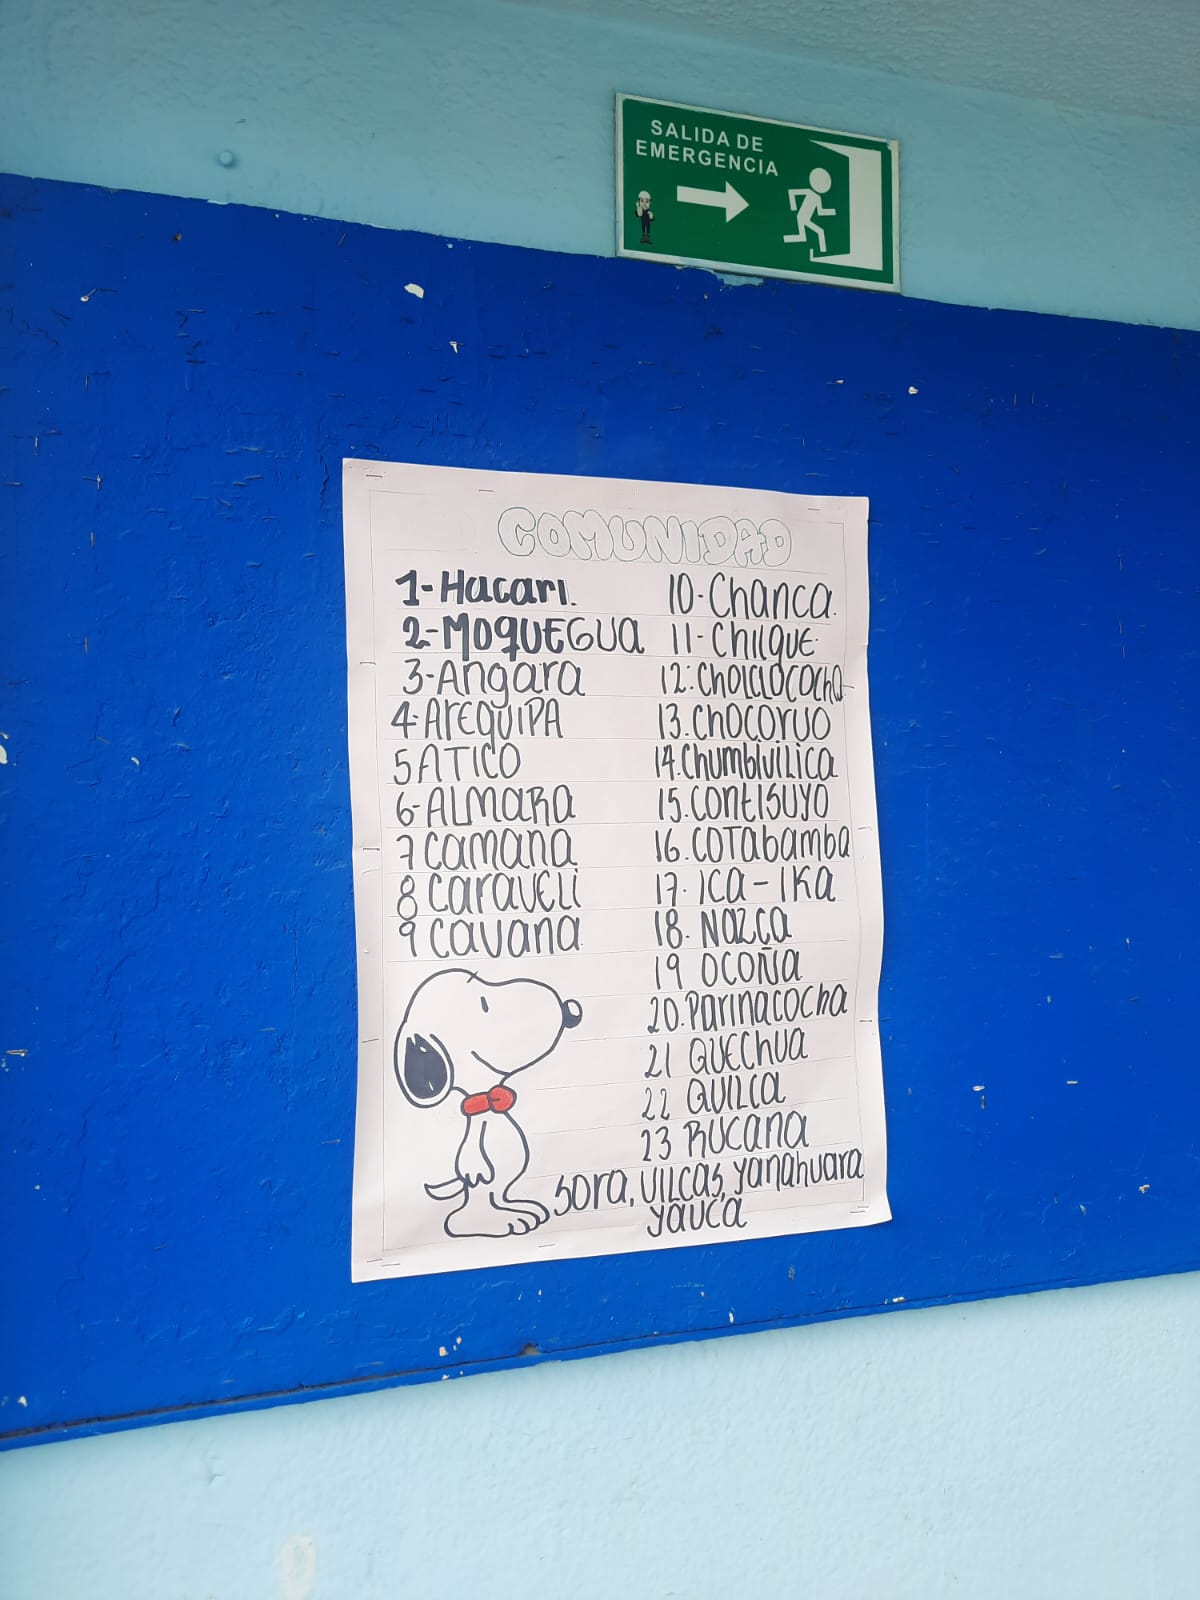 SALIDA DE
EMERGENCIA
COMUNIDAD
1-Hacari.
2-MOQUEGUA
3-Angara
4-AREQUIPA
5 ATICO
6-ALMARA
7 camana
8 caraveli
9 cavana
10-Chanca.
11-Chilque.
12.Cholclococha
13.Chocoruo
14.Chumbivilica
15.contisuyo
16.COTabamba
17. ICA-IKA
18. Nazca
19 OCOÑA
20.Parinacocha
21 QUEChUA
22 QUILCA
23 RUCANA
Sora, VILCAS, yanahuara
yauca